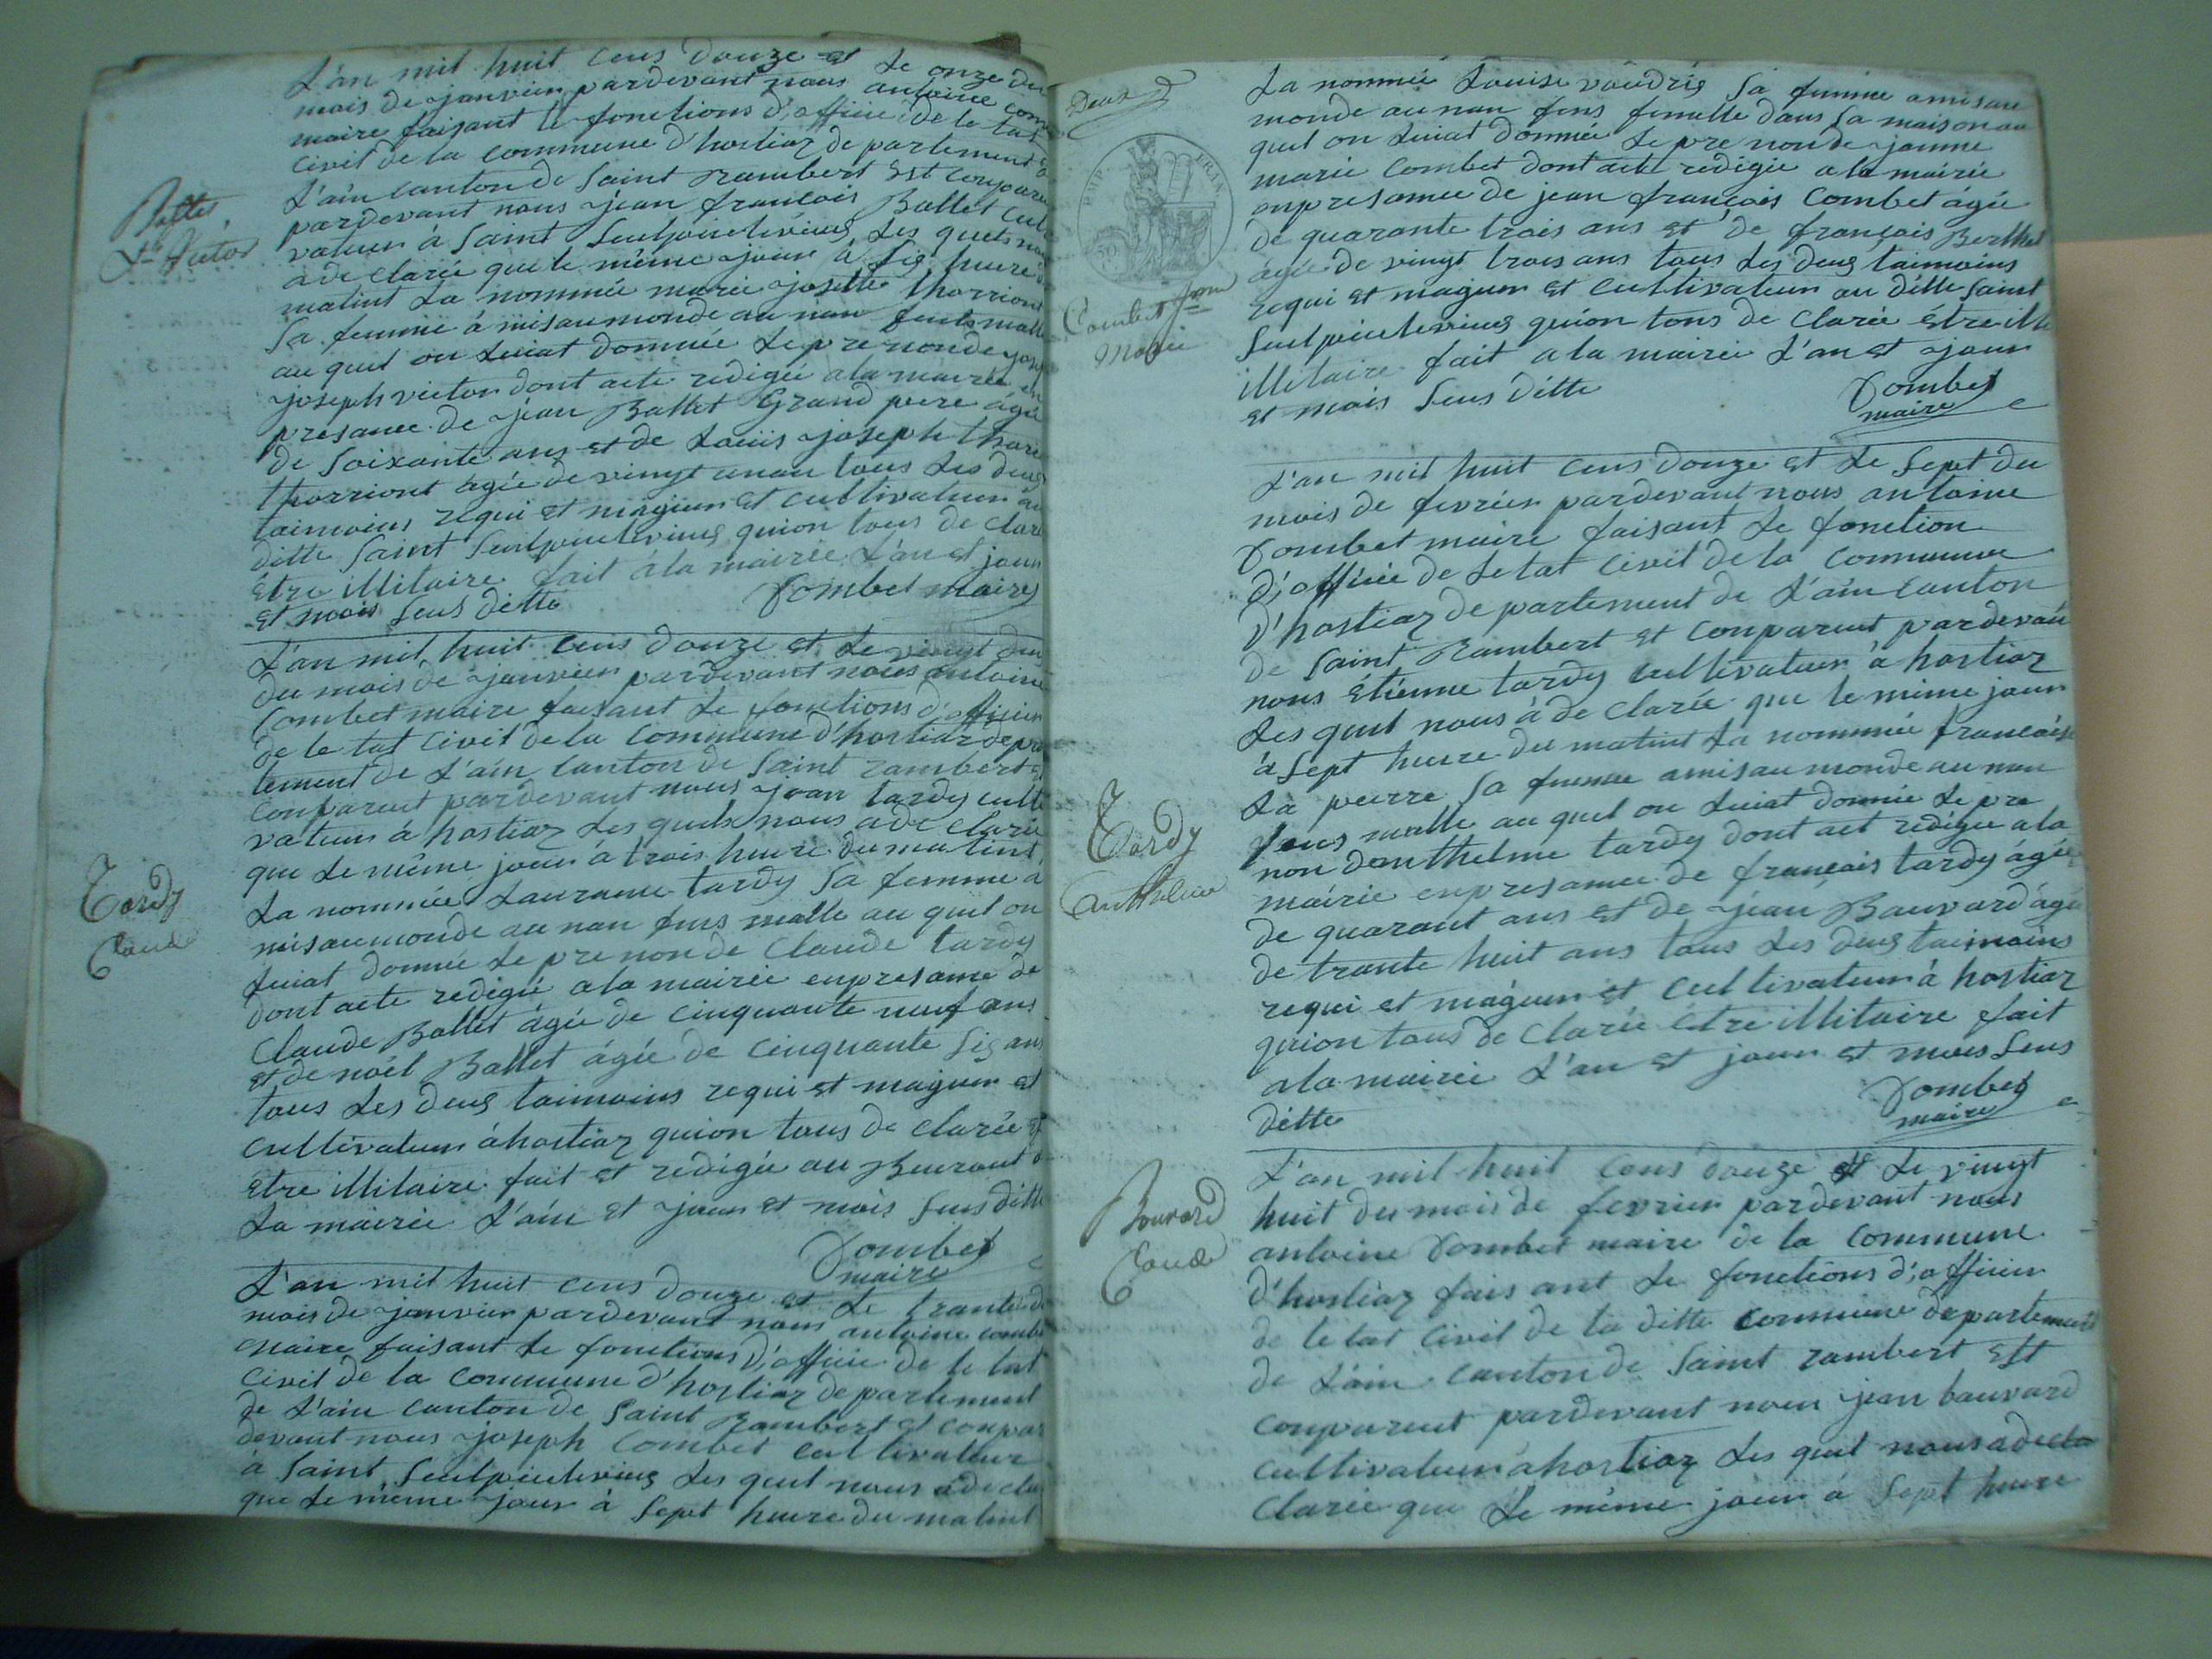 L'an mil huit cens douze et le onze du
mois de janvier pardevant nous antoine com
maire faisant le fonctions d'officie de le tat
civil de la commune d'hostiaz de partement de
L'ain canton de Saint Rambert est conparu
pardevant nous jean francois Ballet culti
vateur à Saint Seulpicelevieus Les quels nous
a de clarée que le même jour à sis heure du
matint La nommée marie josette thorriont
Sa femme à misaumonde au nan fens malle
au quel on Luiat donnée Le pre nonde jose
joseph victor dont acte redigée a la mairie en
presance de jean Ballet Grand pere âgée
de Soixante ans et de Louiis joseph thorri
thorriont âgée de vingt unan tous Les deus
taimoins requi et majeur et cultivateur au
ditte Saint Seulpicelevieus quion tous de clare
être illitaire fait à la mairie L'an et jour
et mois Sens ditte
Combet maire
Ballet
Jh Victor
L'an mil huit cens douze et Le vingt deus
du mois de janvier pardevant nous antoine
Combet maire faisant Le fonctions d'officier
de le tat civil de la commune d'hostiaz de par
tement de L'ain canton de Saint rambert et
conparent pardevant nous jean tardy culti
vateur à hostiaz Les quels nous a de clarée
que Le même jour à trois heure du matint
La nommée Lauranne tardy Sa femme a
misaumonde au nan fens malle au quel on
Luiat donnée Le pre nonde Claude tardy
dont acte redigée a la mairie enpresance de
Claude Ballet âgée de cinquante neuf ans
et de noël Ballet âgée de cinquante Sis ans
tous Les deus taimoins requi et majeur et
cultivateur à hostiaz quion tous de clarée
être illitaire fait et redigée au Bureaut de
La mairie L'ain et jour et mois Sens ditte
Combet
maire
Tardy
Claude
L'an mil huit cens douze et Le trante du
mois de janvier pardevant nous antoine combet
maire faisant Le fonctions d'officie de le tat
civil de la commune d'hostiaz de partement
de L'ain canton de Saint Rambert et conpar
devant nous joseph Combet cultivateur
à Saint Seulpicelevieus Les quel nous a de cla
que Le même jour à Sept heure du matint
Deux
EMP. FRAN.
La nommée Louise vaudris Sa femme amisau
monde au nan fens femelle dans Sa maison au
quel on Luiat donnée Le pre nonde janne
marie Combet dont acte redigée a la mairie
enpresance de jean françois Combet âgée
de quarante trois ans et de françois Berthet
âgée de vingt trois ans tous Les deus taimoins
requi et majeur et cultivateur au ditte Saint
Seulpicelevieus quion tous de clarée être ill
illitaire fait a la mairie L'an et jour
et mois Sens ditte
Combet
maire
Combet Jne
Marie
L'an mil huit cens douze et Le Sept du
mois de fevrier pardevant nous antoine
Combet maire faisant Le fonction
d'officie de Letat civil de la commune
d'hostiaz de partement de L'ain canton
de Saint Rambert et conparent pardevan
nous étienne tardy cultivateur à hostiaz
Les quel nous à de clarée que le même jour
à Sept heure du matint La nommée francoise
La peirre Sa femme amisaumonde au nan
fens malle au quel on Luiat donnée Le pre
non danthelme tardy dont act redigée a la
mairie enpresance de francais tardy âgée
de quarant ans et de jean Bauvard âgée
de trante huit ans tous Les deus taimoins
requi et majeur et cultivateur à hostiaz
quion tous de clarée etre illitaire fait
a la mairie L'an et jour et mois Sens
ditte
Combet
maire
Tardy
Anthelme
L'an mil huit cens douze et Le vingt
huit du mois de fevrier pardevant nous
antoine Combet maire de la commune
d'hostiaz fais ant Le fonctions d'officier
de le tat civil de la ditte commune departement
de L'ain canton de Saint rambert est
conparent pardevant nous jean bauvard
cultivateur à hostiaz Les quel nous a de cla
clarée que Le même jour à Sept heure
Bouvard
Claude